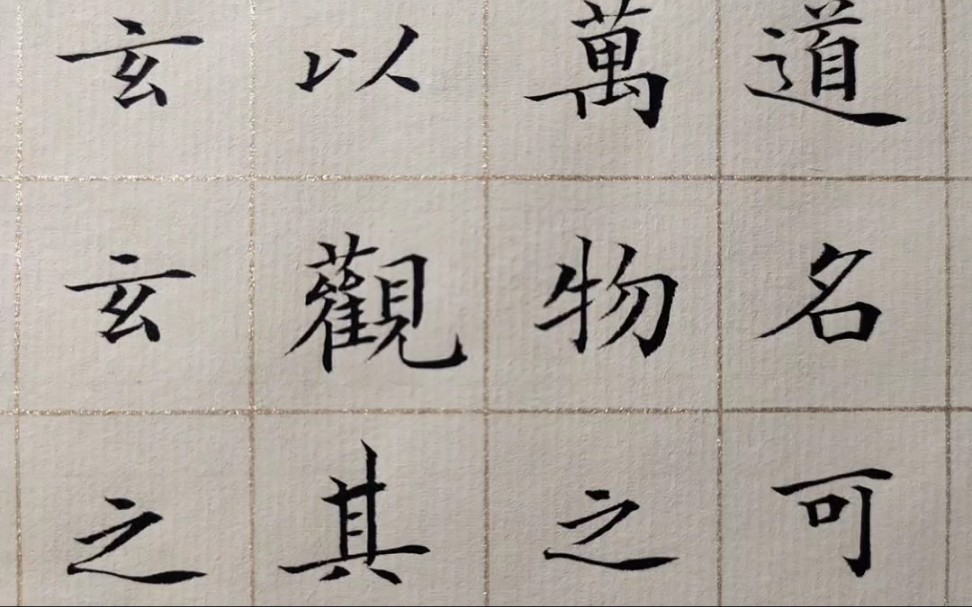 道名可
萬物之
以觀其
玄玄之